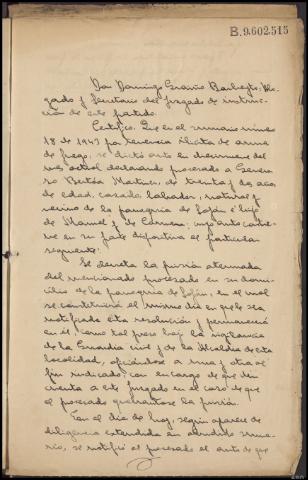 B.9.602.515
Don Domingo Graiño Barbeyto, Abo-
gado y Secretario del Juzgado de instruc-
ción de este partido.
Certifico: Que en el sumario núme-
18 de 1943 por tenencia ilícita de arma
de fuego, se dictó auto en diecinueve del
declarando procesado a
de treinta y dos años
de edad, casado, labrador, natural y
vecino de la parroquia de e hijo
de Manuel y de Carmen; cuyo auto contie-
ne en su parte dispositiva el particular
siguiente:
Se decreta la prisión atenuada
del mencionado procesado en su domi-
cilio de la parroquia de en el cual
se constituirá el mismo día en que le sea
notificada esta resolución y permanecerá
en él como tal preso bajo la vigilancia
de la Guardia civil y de la Alcaldía de esta
localidad, oficiándose a una y otra al
fin indicado, con encargo de que den
cuenta a este Juzgado en el caso de que
el procesado quebrantase la prisión.
En el día de hoy, según aparece de
diligencia extendida en aludido suma-
rio, se notificó al procesado el auto de que